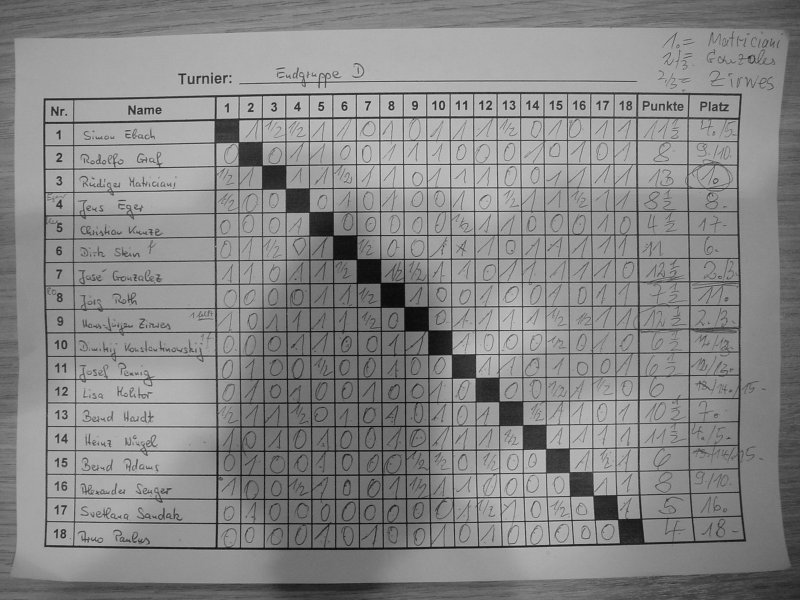 1.= Matriciani
2./3. Gonzales
2/3= Zirwes
Turnier: Endgruppe D
Nr. Name 1 2 3 4 5 6 7 8 9 10 11 12 13 14 15 16 17 18 Punkte Platz
1 Simon Ebach 1 1/2 1/2 1 1 0 1 0 1 1 1 1/2 0 1 0 1 1 11 1/2 4./5.
2 Rodolfo Graf 0 0 1 1 0 0 1 1 1 0 0 0 1 0 1 0 1 8 9./10.
3 Rüdiger Matriciani 1/2 1 1 1 1/2 1 1 0 1 1 1 0 0 1 1 1 1 13 1.
4 Jens Eger 1/2 0 0 0 1 0 1 0 0 1 0 1/2 1 1 1/2 1 1 8 1/2 8.
5 Christian Kunze 0 0 0 1 0 0 0 0 0 1/2 1 1 0 0 0 1 0 4 1/2 17.
6 Dirk Stein 0 1 1/2 0 1 1/2 0 0 1 1 1 0 1 1 1 1 1 11 6.
7 José Gonzalez 1 1 0 1 1 1/2 1/2 1/2 1 1 0 1 1 1 1 1 0 12 1/2 2./3.
8 Jörg Roth 0 0 0 0 1 1 1/2 1 0 0 1 0 0 1 0 1 1 7 1/2 11.
9 Hans-Jürgen Zirwes 1 0 1 1 1 1 1/2 0 0 1 1 1 1 1/2 1/2 1 1 12 1/2 2./3.
10 Dimitrij Konstantinowskij 0 0 0 1 1 0 0 1 1 0 0 0 0 1/2 0 1 1 6 1/2
11 Josef Pennig 0 1 0 0 1/2 0 0 1 0 1 1 0 1 0 0 1 6 1/2
12 Lisa Molitor 0 1 0 1 0 0 1 0 0 1 0 0 0 1/2 1 1/2 0 6
13 Bernd Hardt 1/2 1 1 1/2 0 1 0 1 0 1 0 1 1/2 1 1 0 1 10 1/2 7.
14 Heinz Nüngel 1 0 1 0 1 0 0 1 0 1 1 1 1/2 1 1 1 1 11 1/2 4./5.
15 Bernd Adams 0 1 0 0 1 0 0 0 1/2 1/2 0 1/2 0 0 1 1/2 1 6
16 Alexander Senger 1 0 0 1/2 1 0 0 1 1/2 1 1 0 0 0 0 1 1 8 9/10.
17 Svetlana Sandak 0 1 0 0 0 0 0 0 0 0 1 1/2 1 0 1/2 0 1 5 16.
18 Arno Paulus 0 0 0 0 1 0 1 0 0 0 0 1 0 0 0 0 0 4 18.